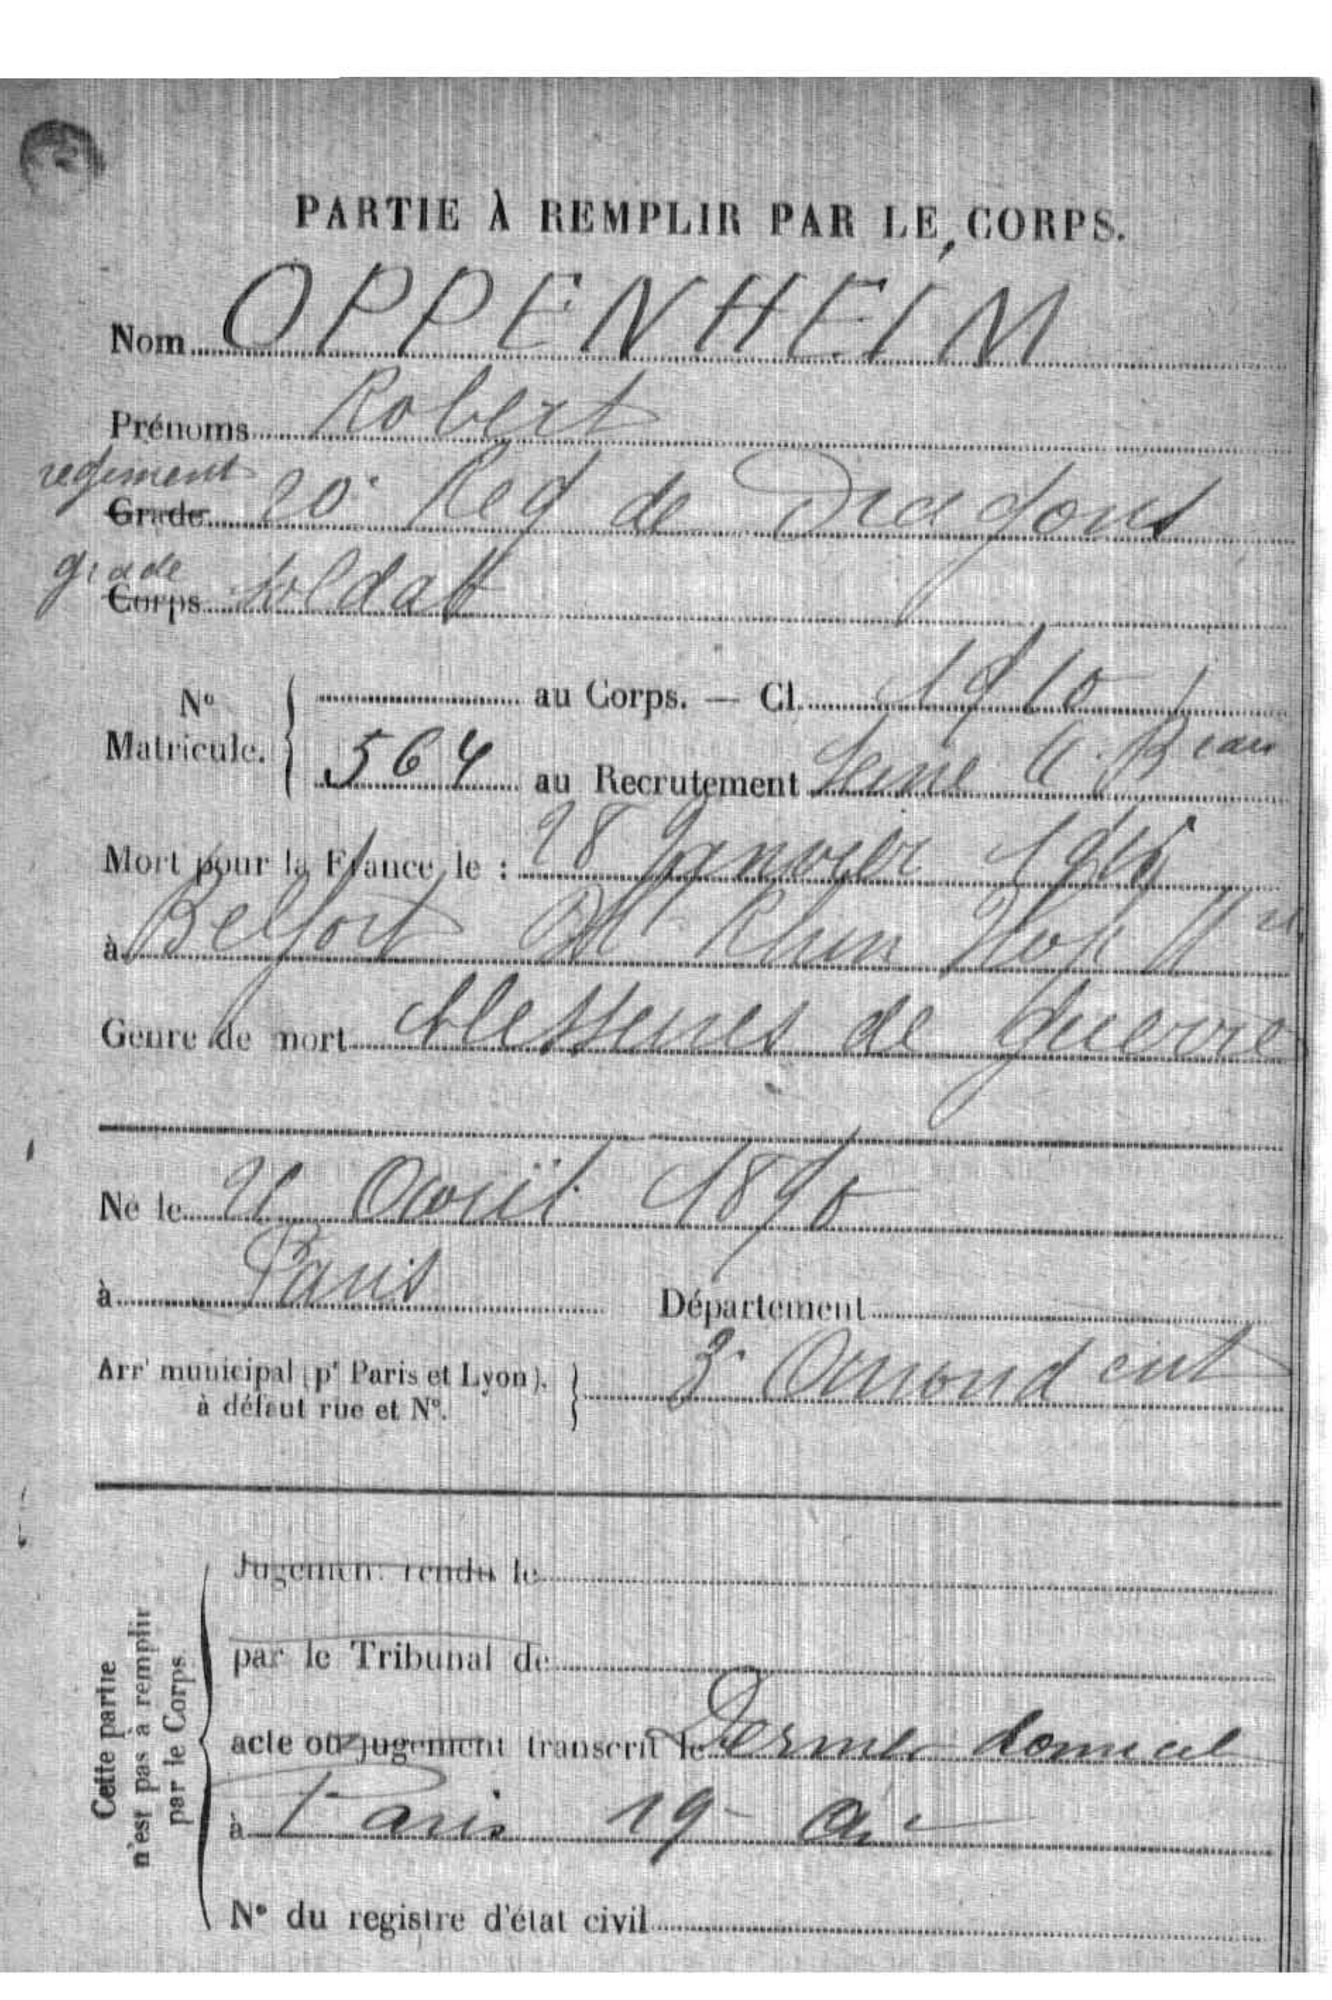 PARTIE À REMPLIR PAR LE CORPS.
Nom OPPENHEIM
Prénoms Robert
regiment
Grade 20e Reg de Dragons
grade
Corps soldat
N° Matricule. au Corps. — Cl. 1910
564 au Recrutement Seine 4e Bau
Mort pour la France le : 28 Janvier 1915
à Belfort Ht Rhin Hop
Genre de mort blessures de guerre
Né le 21 Avril 1890
à Paris Département
Arrt municipal (pr Paris et Lyon), 3e Arrondent
à défaut rue et N°.
Cette partie
n'est pas à remplir
par le Corps.
Jugement rendu le
par le Tribunal de
acte ou jugement transcrit le Dernier domicile
à Paris 19e Arr
N° du registre d'état civil